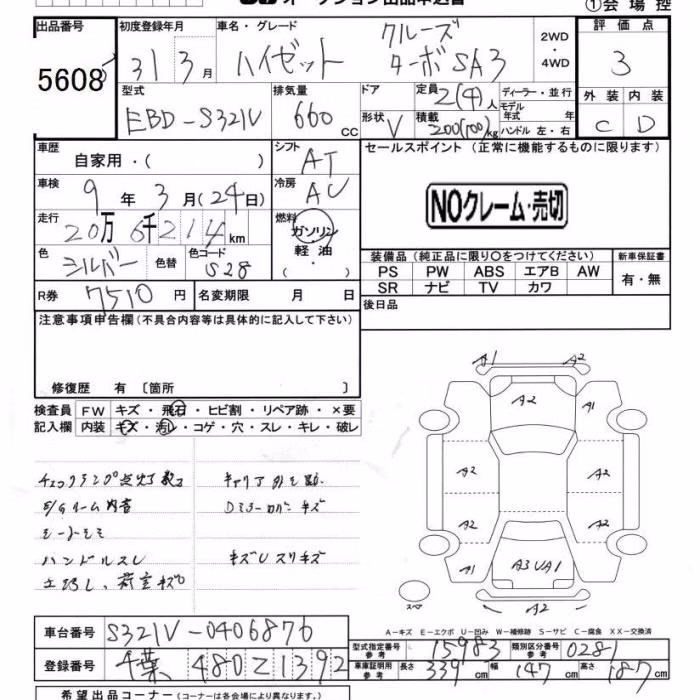 ①会場控
出品番号
5608
初度登録年月
31 3月
車名・グレード
ハイゼット
クルーズ
ターボSA3
2WD
・
4WD
評価点
3
型式
EBD-S321V
排気量
660
cc
ドア
形状
V
定員
2(4)人
積載
200(100)kg
ディーラー・並行
モデル
年式 年
ハンドル 左・右
外装 内装
C D
車歴
自家用・( )
シフト
AT
車検
9年3月(24日)
冷房
AC
走行
20万6千214km
燃料
ガソリン
軽油
・( )
色
シルバー
色替
色コード
S28
R券
7510円
名変期限 月 日
セールスポイント(正常に機能するものに限ります)
NOクレーム・売切
装備品(純正品に限り○をつけてください)
新車保証書
PS PW ABS エアB AW
SR ナビ TV カワ
有・無
後日品
注意事項申告欄(不具合内容等は具体的に記入して下さい)
修復歴 有〔箇所 〕
検査員
記入欄
FW キズ・飛石・ヒビ割・リペア跡・×要
内装 キズ・汚レ・コゲ・穴・スレ・キレ・破レ
ハンドルスレ
A1 A2
A2 A1
A2 A2
A2 A2
A1 A3UA1
A2
スペ
A-キズ E-エクボ U-凹み W-補修跡 S-サビ C-腐食 XX-交換済
車台番号
S321V-0406876
登録番号
千葉 480 せ 1392
型式指定番号
参考
15983
類別区分番号
参考
0281
車庫証明用
参考
長さ
339cm
幅
147cm
高さ
187cm
希望出品コーナー(コーナーは各会場により異なります。)